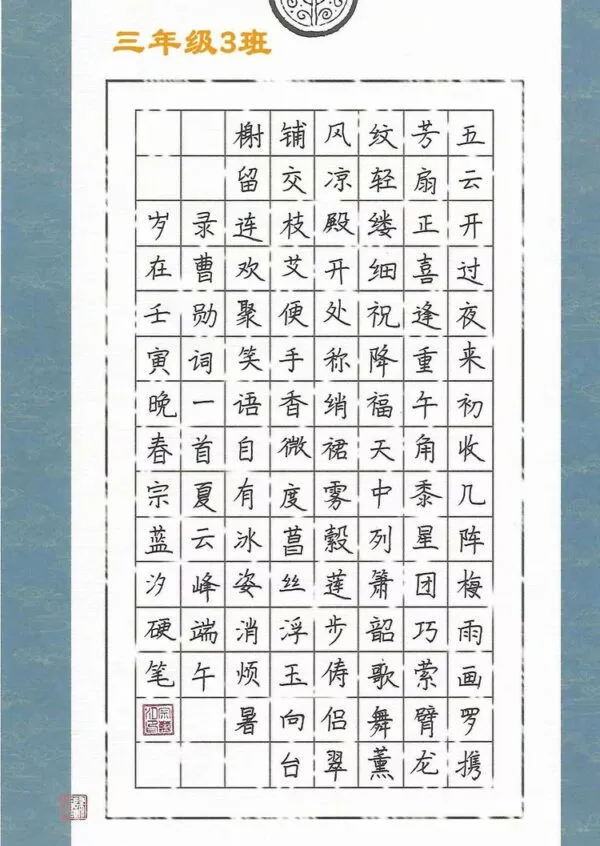 三年级3班
五云开过夜来初收几阵梅雨画罗携
芳扇正喜逢重午角黍星团巧萦臂龙
纹轻缕细祝降福天中列箫韶歌舞薰
风凉殿开处称绡裙雾縠莲步俦侣翠
铺交枝艾便手香微度菖丝浮玉向台
榭留连欢聚笑语自有冰姿消烦暑
录曹勋词一首夏云峰端午
岁在壬寅晚春宗蓝汐硬笔